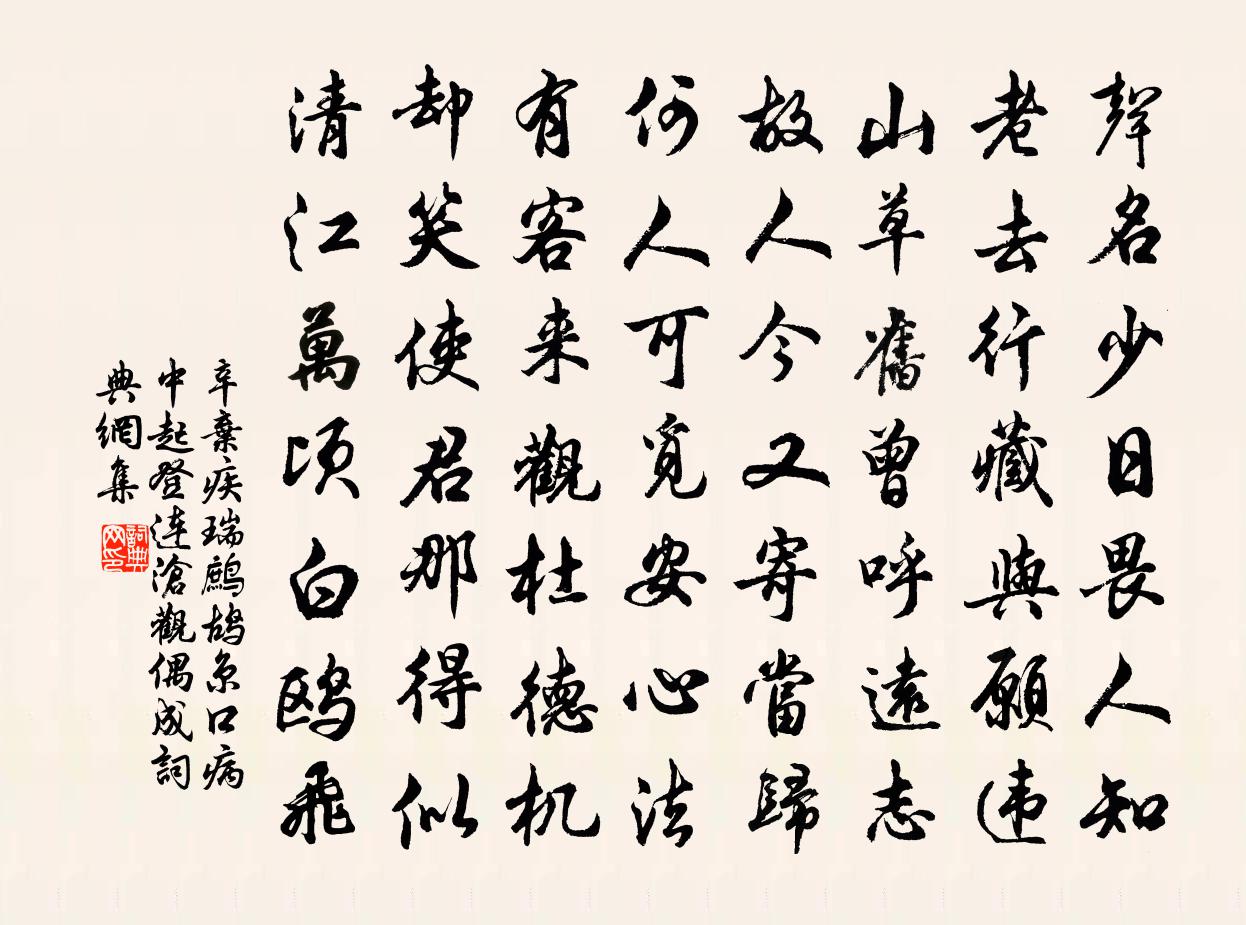 聲名少日畏人知
老去行藏與願違
山草舊曾呼遠志
故人今又寄當歸
何人可覓安心法
有客来觀杜德机
却笑使君那得似
清江萬頃白鸥飛
辛棄疾瑞鹧鸪京口病
中起登连滄觀偶成詞
典網集
詞典
网印